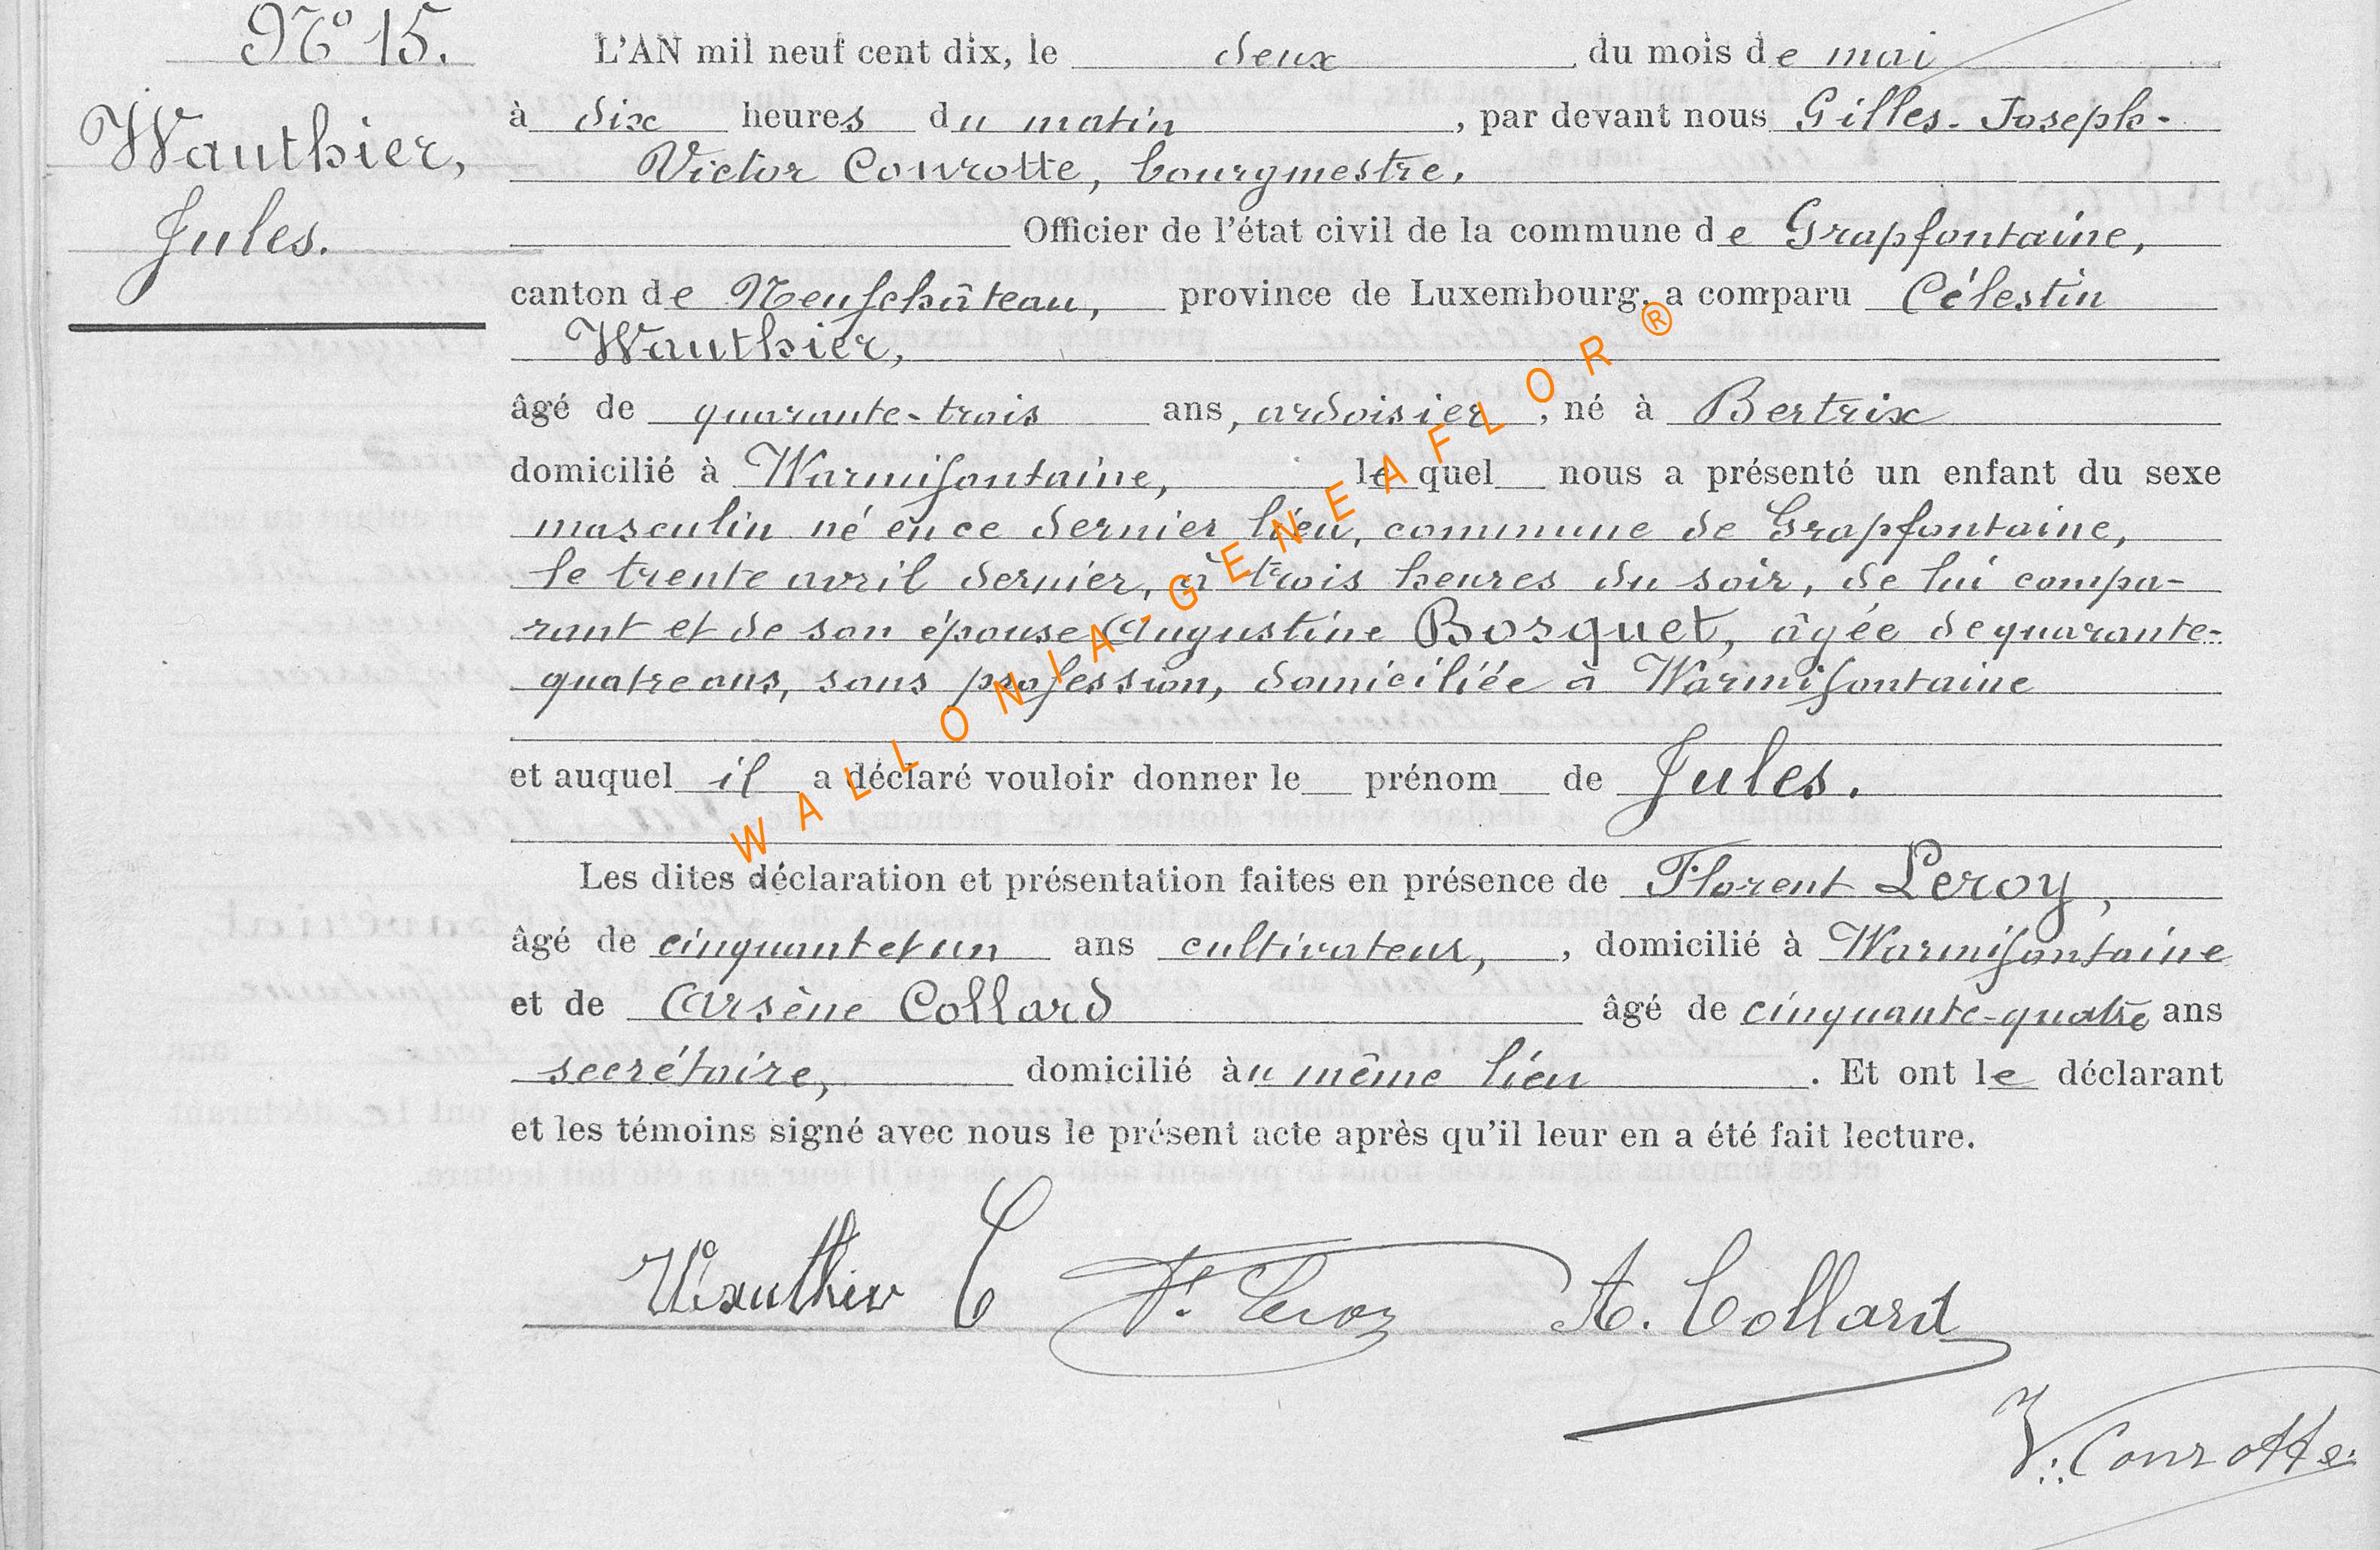 N° 15.
Wauthier,
Jules.
L'AN mil neuf cent dix, le deux du mois de mai
à dix heures du matin, par devant nous Gilles-Joseph-
Victor Conrotte, bourgmestre,
Officier de l'état civil de la commune de Grapfontaine,
canton de Neufchâteau, province de Luxembourg, a comparu Célestin
Wauthier,
âgé de quarante-trois ans, ardoisier, né à Bertrix
domicilié à Warmifontaine, lequel nous a présenté un enfant du sexe
masculin né en ce dernier lieu, commune de Grapfontaine,
le trente avril dernier, à trois heures du soir, de lui compa-
rant et de son épouse Augustine Bosquet, âgée de quarante-
quatre ans, sans profession, domiciliée à Warmifontaine
et auquel il a déclaré vouloir donner le prénom de Jules.
Les dites déclaration et présentation faites en présence de Florent Leroy,
âgé de cinquant et un ans cultivateur, , domicilié à Warmifontaine
et de Arsène Collard âgé de cinquante-quatre ans
secrétaire, domicilié au même lieu. Et ont le déclarant
et les témoins signé avec nous le présent acte après qu'il leur en a été fait lecture.
Wauthier C F. Leroy A. Collard
V. Conrotte
WALLONIA-GENEAFLOR®